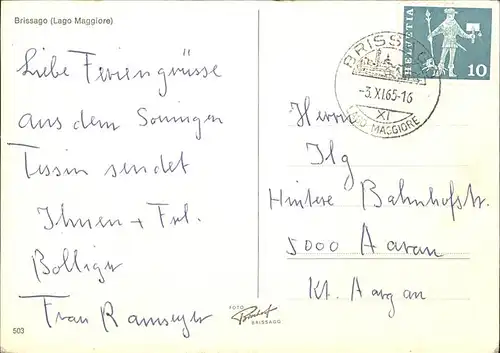 Brissago (Lago Maggiore)
Liebe Feriengrüsse
aus dem Sonnigen
Tessin sendet
Ihnen + Frl.
Bolliger
Frau Ramseyer
503
FOTO
BRISSAGO
BRISSAGO
-3.XI.65-16
XI
LAGO MAGGIORE
HELVETIA
10
Herrn
Ilg
Hintere Bahnhofstr.
5000 Aarau
Kt. Aargau